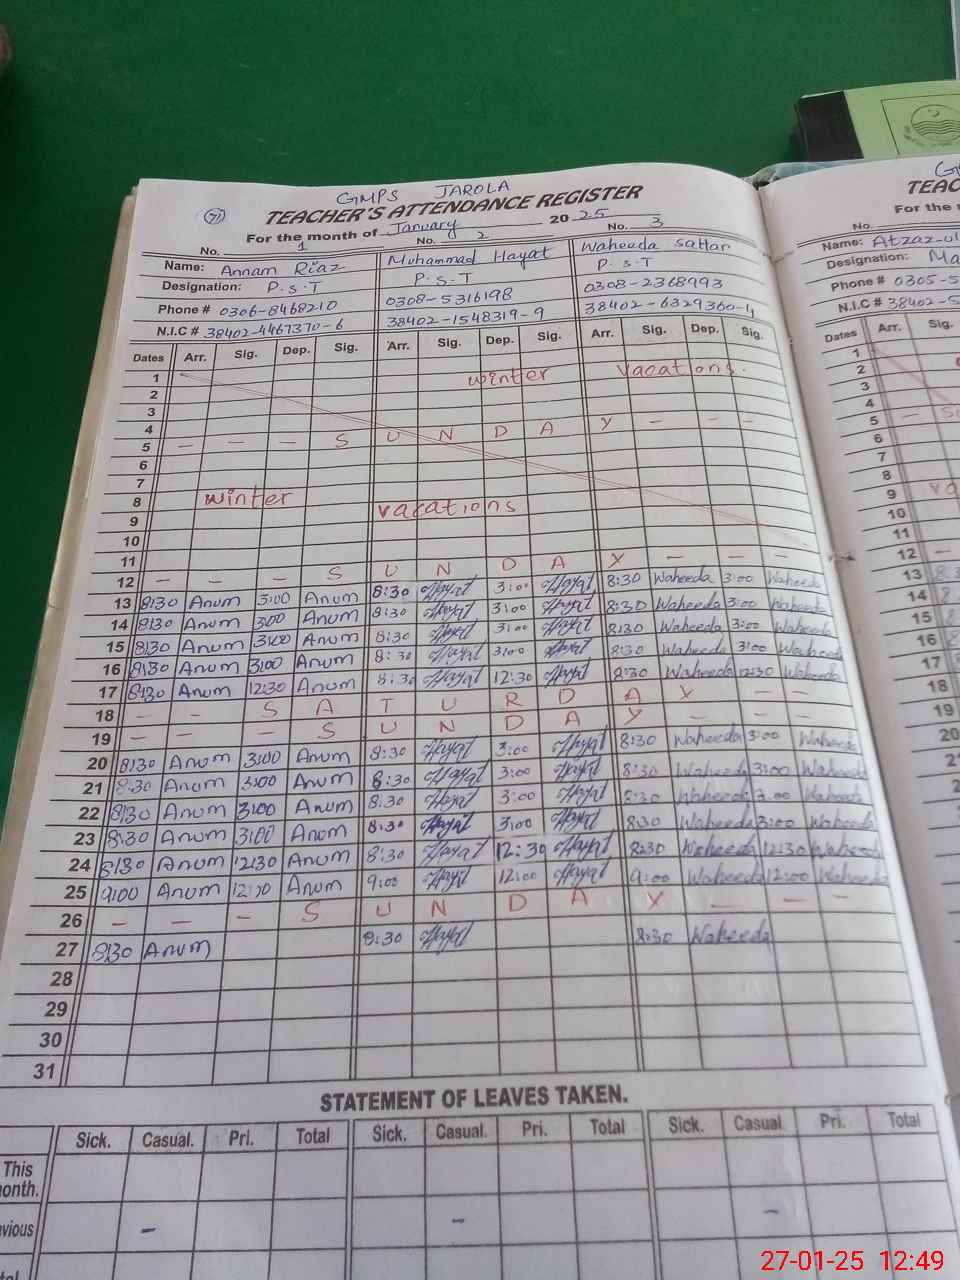 GMPS JAROLA
71
TEACHER'S ATTENDANCE REGISTER
For the month of January 2025
No. 1 No. 2 No. 3
Name: Annam Riaz Muhammad Hayat Waheeda Sattar
Designation: P.S.T P.S.T P.S.T
Phone # 0306-8468210 0308-5316198 0308-2368993
N.I.C # 38402-4467370-6 38402-1548319-9 38402-6329360-4
Dates Arr. Sig. Dep. Sig. Arr. Sig. Dep. Sig. Arr. Sig. Dep. Sig.
1 winter vacations.
2
3
4
5 - - - S U N D A Y - - -
6
7
8 winter vacations
9
10
11
12 - - - S U N D A Y - - -
13 8:30 Anum 3:00 Anum 8:30 Hayat 3:00 Hayat 8:30 Waheeda 3:00 Waheeda
14 8:30 Anum 3:00 Anum 8:30 Hayat 3:00 Hayat 8:30 Waheeda 3:00 Waheeda
15 8:30 Anum 3:00 Anum 8:30 Hayat 3:00 Hayat 8:30 Waheeda 3:00 Waheeda
16 8:30 Anum 3:00 Anum 8:30 Hayat 3:00 Hayat 8:30 Waheeda 3:00 Waheeda
17 8:30 Anum 12:30 Anum 8:30 Hayat 12:30 Hayat 8:30 Waheeda 12:30 Waheeda
18 - - S A T U R D A Y - -
19 - - - S U N D A Y - - -
20 8:30 Anum 3:00 Anum 8:30 Hayat 3:00 Hayat 8:30 Waheeda 3:00 Waheeda
21 8:30 Anum 3:00 Anum 8:30 Hayat 3:00 Hayat 8:30 Waheeda 3:00 Waheeda
22 8:30 Anum 3:00 Anum 8:30 Hayat 3:00 Hayat 8:30 Waheeda 3:00 Waheeda
23 8:30 Anum 3:00 Anum 8:30 Hayat 3:00 Hayat 8:30 Waheeda 3:00 Waheeda
24 8:30 Anum 12:30 Anum 8:30 Hayat 12:30 Hayat 8:30 Waheeda 12:30 Waheeda
25 9:00 Anum Anum 9:00 Hayat 12:00 Hayat 9:00 Waheeda 12:00 Waheeda
26 - - - S U N D A Y - - -
27 8:30 Anum 8:30 Hayat 8:30 Waheeda
28
29
30
31
STATEMENT OF LEAVES TAKEN.
Sick. Casual. Pri. Total Sick. Casual. Pri. Total Sick. Casual. Pri. Total
This
onth.
vious - - -
For the
No.
Name: Atzaz-ul
Designation:
Phone # 0305-5
N.I.C # 38402-5
Dates Arr. Sig.
1
2
3
4
5 -
6
7
8
9
10
11
12 -
13
14
15
16
17
18
19
20
27-01-25 12:49